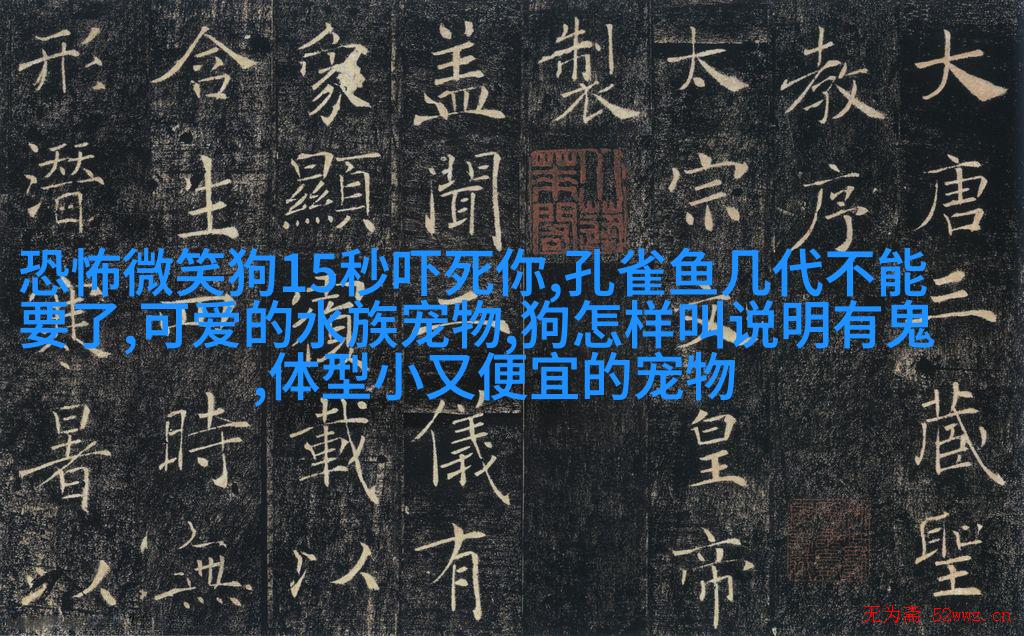 大唐三藏聖
教序
太宗文皇帝
製
盖聞二儀有
象顯覆載以
含生四時無
形潛寒暑以
恐怖微笑狗15秒吓死你,孔雀鱼几代不能
要了,可爱的水族宠物,狗怎样叫说明有鬼
,体型小又便宜的宠物
无为斋 52wwz.cn